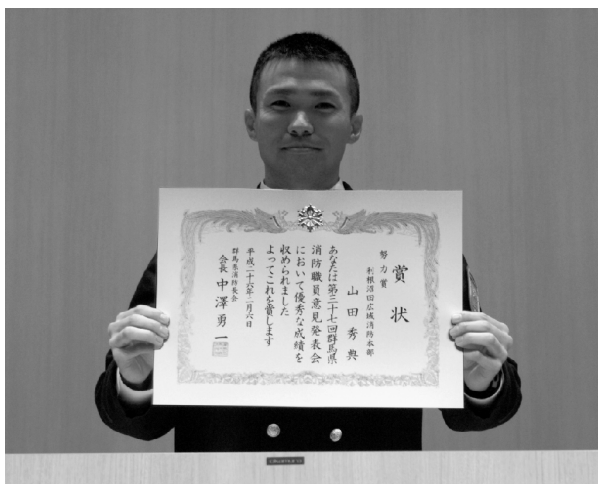 賞状
努力賞
利根沼田広域消防本部
山田秀典
あなたは第三十七回群馬県
消防職員意見発表会
において優秀な成績を
収められました
よってこれを賞します
平成二十六年二月六日
群馬県消防長会
会長 中澤勇一